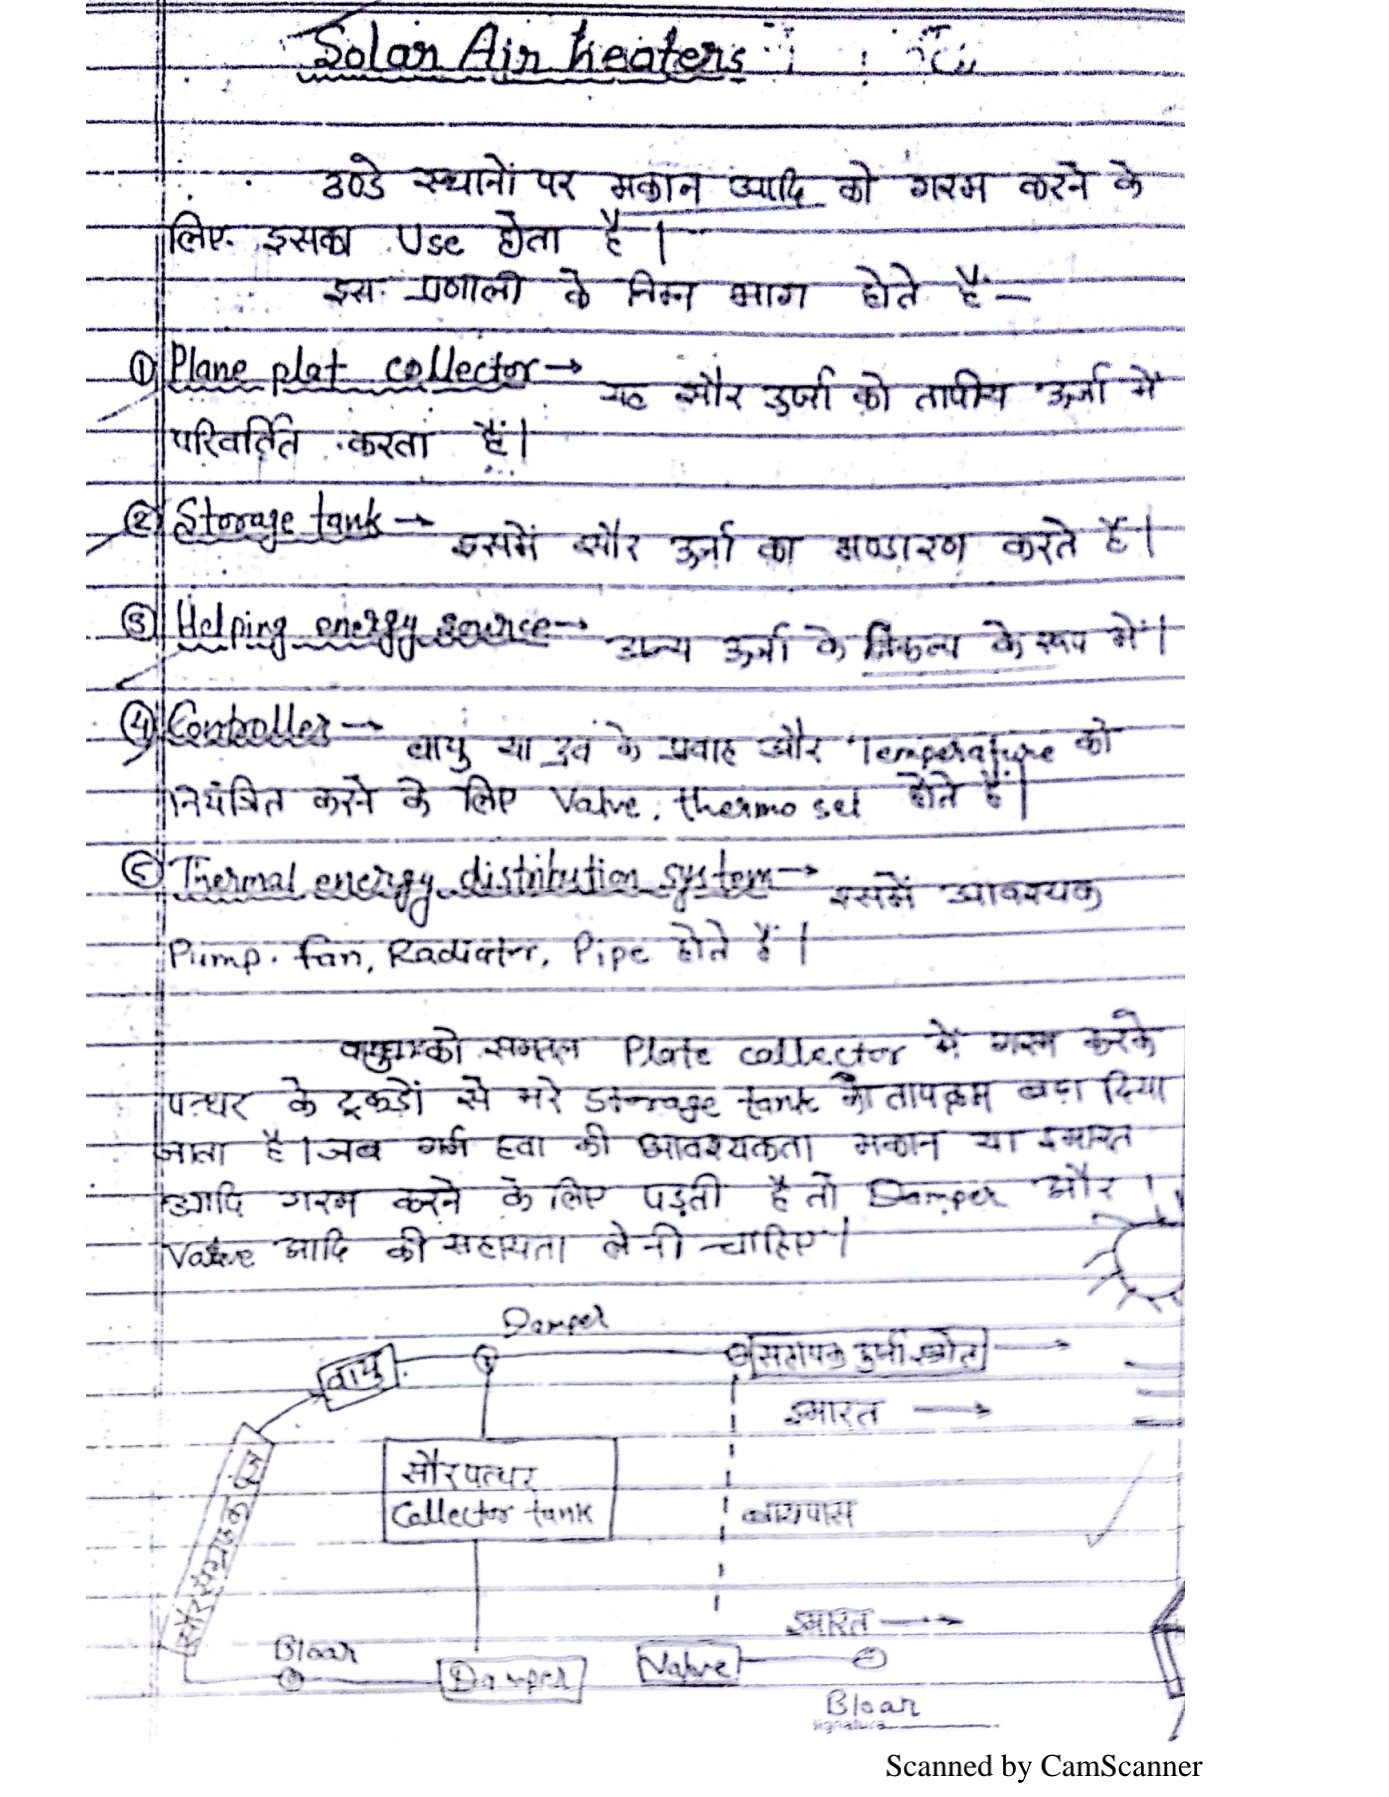 Solar Air heaters
ठण्डे स्थानों पर मकान आदि को गरम करने के
लिए इसका Use होता है।
इस प्रणाली के निम्न भाग होते हैं—
① Plane plat collector → यह सौर उर्जा को तापीय ऊर्जा में
परिवर्तित करता हैं।
② Storage tank → इसमें सौर ऊर्जा का भण्डारण करते हैं।
③ Helping energy source → अन्य ऊर्जा के विकल्प के रूप में।
④ Controller → वायु या द्रव के प्रवाह और Temperature को
नियंत्रित करने के लिए Valve, thermo set होते हैं।
⑤ Thermal energy distribution system → इसमें आवश्यक
Pump. fan, Radiator, Pipe होते हैं।
को समतल Plate collector में गरम करके
पत्थर के टूकड़ों से भरे Storage tank को तापक्रम बढ़ा दिया
जाता है। जब गर्म हवा की आवश्यकता मकान या इमारत
आदि गरम करने के लिए पड़ती है तो Damper और
Valve आदि की सहायता लेनी चाहिए।
Damper
वायु
सहायक उर्जा स्त्रोत
इमारत →
सौर संग्राहक
सौर पत्थर
Collector tank
बायपास
इमारत →
Bloar
Damper
Valve
Bloar
Signature
Scanned by CamScanner